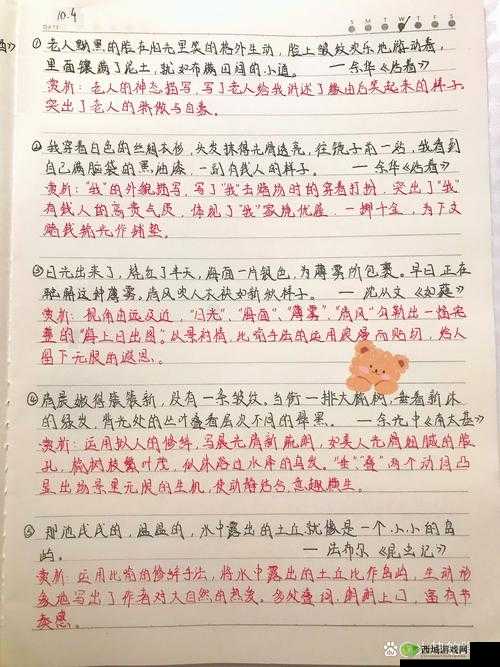 10.4
DATE:
S M T W T F S
①老人黝黑的脸在阳光里笑的格外生动，脸上皱纹欢乐地游动着，
里面镶满了泥土，就如布满田间的小道。 ——余华《活着》
赏析：老人的神态描写，写了老人给我讲述了缘由后笑起来的样子。
突出了老人的
②我穿着白色的丝绸衣衫，头发抹得光滑透亮，往镜子前一站，我看到
自己满脑袋的黑油漆，一副有钱人的样子。 ——余华《活着》
赏析："我"的外貌描写，写了"我"去赌场时的穿着打扮，突出了"我"
有钱人的高贵气质，体现了"我"家境优渥，一掷千金，为下文
赌钱输光作铺垫。
③日光出来了，烧红了半天，海面一片银色，为薄雾所包裹。早日正在
融解这种薄雾。清风吹人衣袂如新秋样子。 ——沈从文《如蕤》
赏析：视角由远及近，"日光"，"海面"，"薄雾"，"清风"勾勒出一幅完
整的"海上日出图"。以景衬情，比喻手法的运用浪漫而贴切，给人
留下无限的遐思。
④清晨嫩得簇簇新，没有一条皱纹。当街一排大榆树，垂着新沐
的绿发，背光处的丛叶叠着层次不同的翠黑。 ——余光中《南太基》
赏析：运用拟人的修辞，写晨光清新脆嫩，如美人光滑细腻的脸
孔，榆树枝繁叶茂，似沐浴过水库的乌发。"垂""叠"两个动词凸
显出场景里无限的生机，使动静结合，意趣横生。
⑤那池浅浅的，温温的，水中露出的土丘就像是一个小小的岛
屿。 ——法布尔《昆虫记》
赏析：运用比喻的修辞手法，将水中露出的土丘比作岛屿，生动形
象地写出了作者对大自然的热爱。多处叠词，朗朗上口，富有节
奏感。
西域游戏网